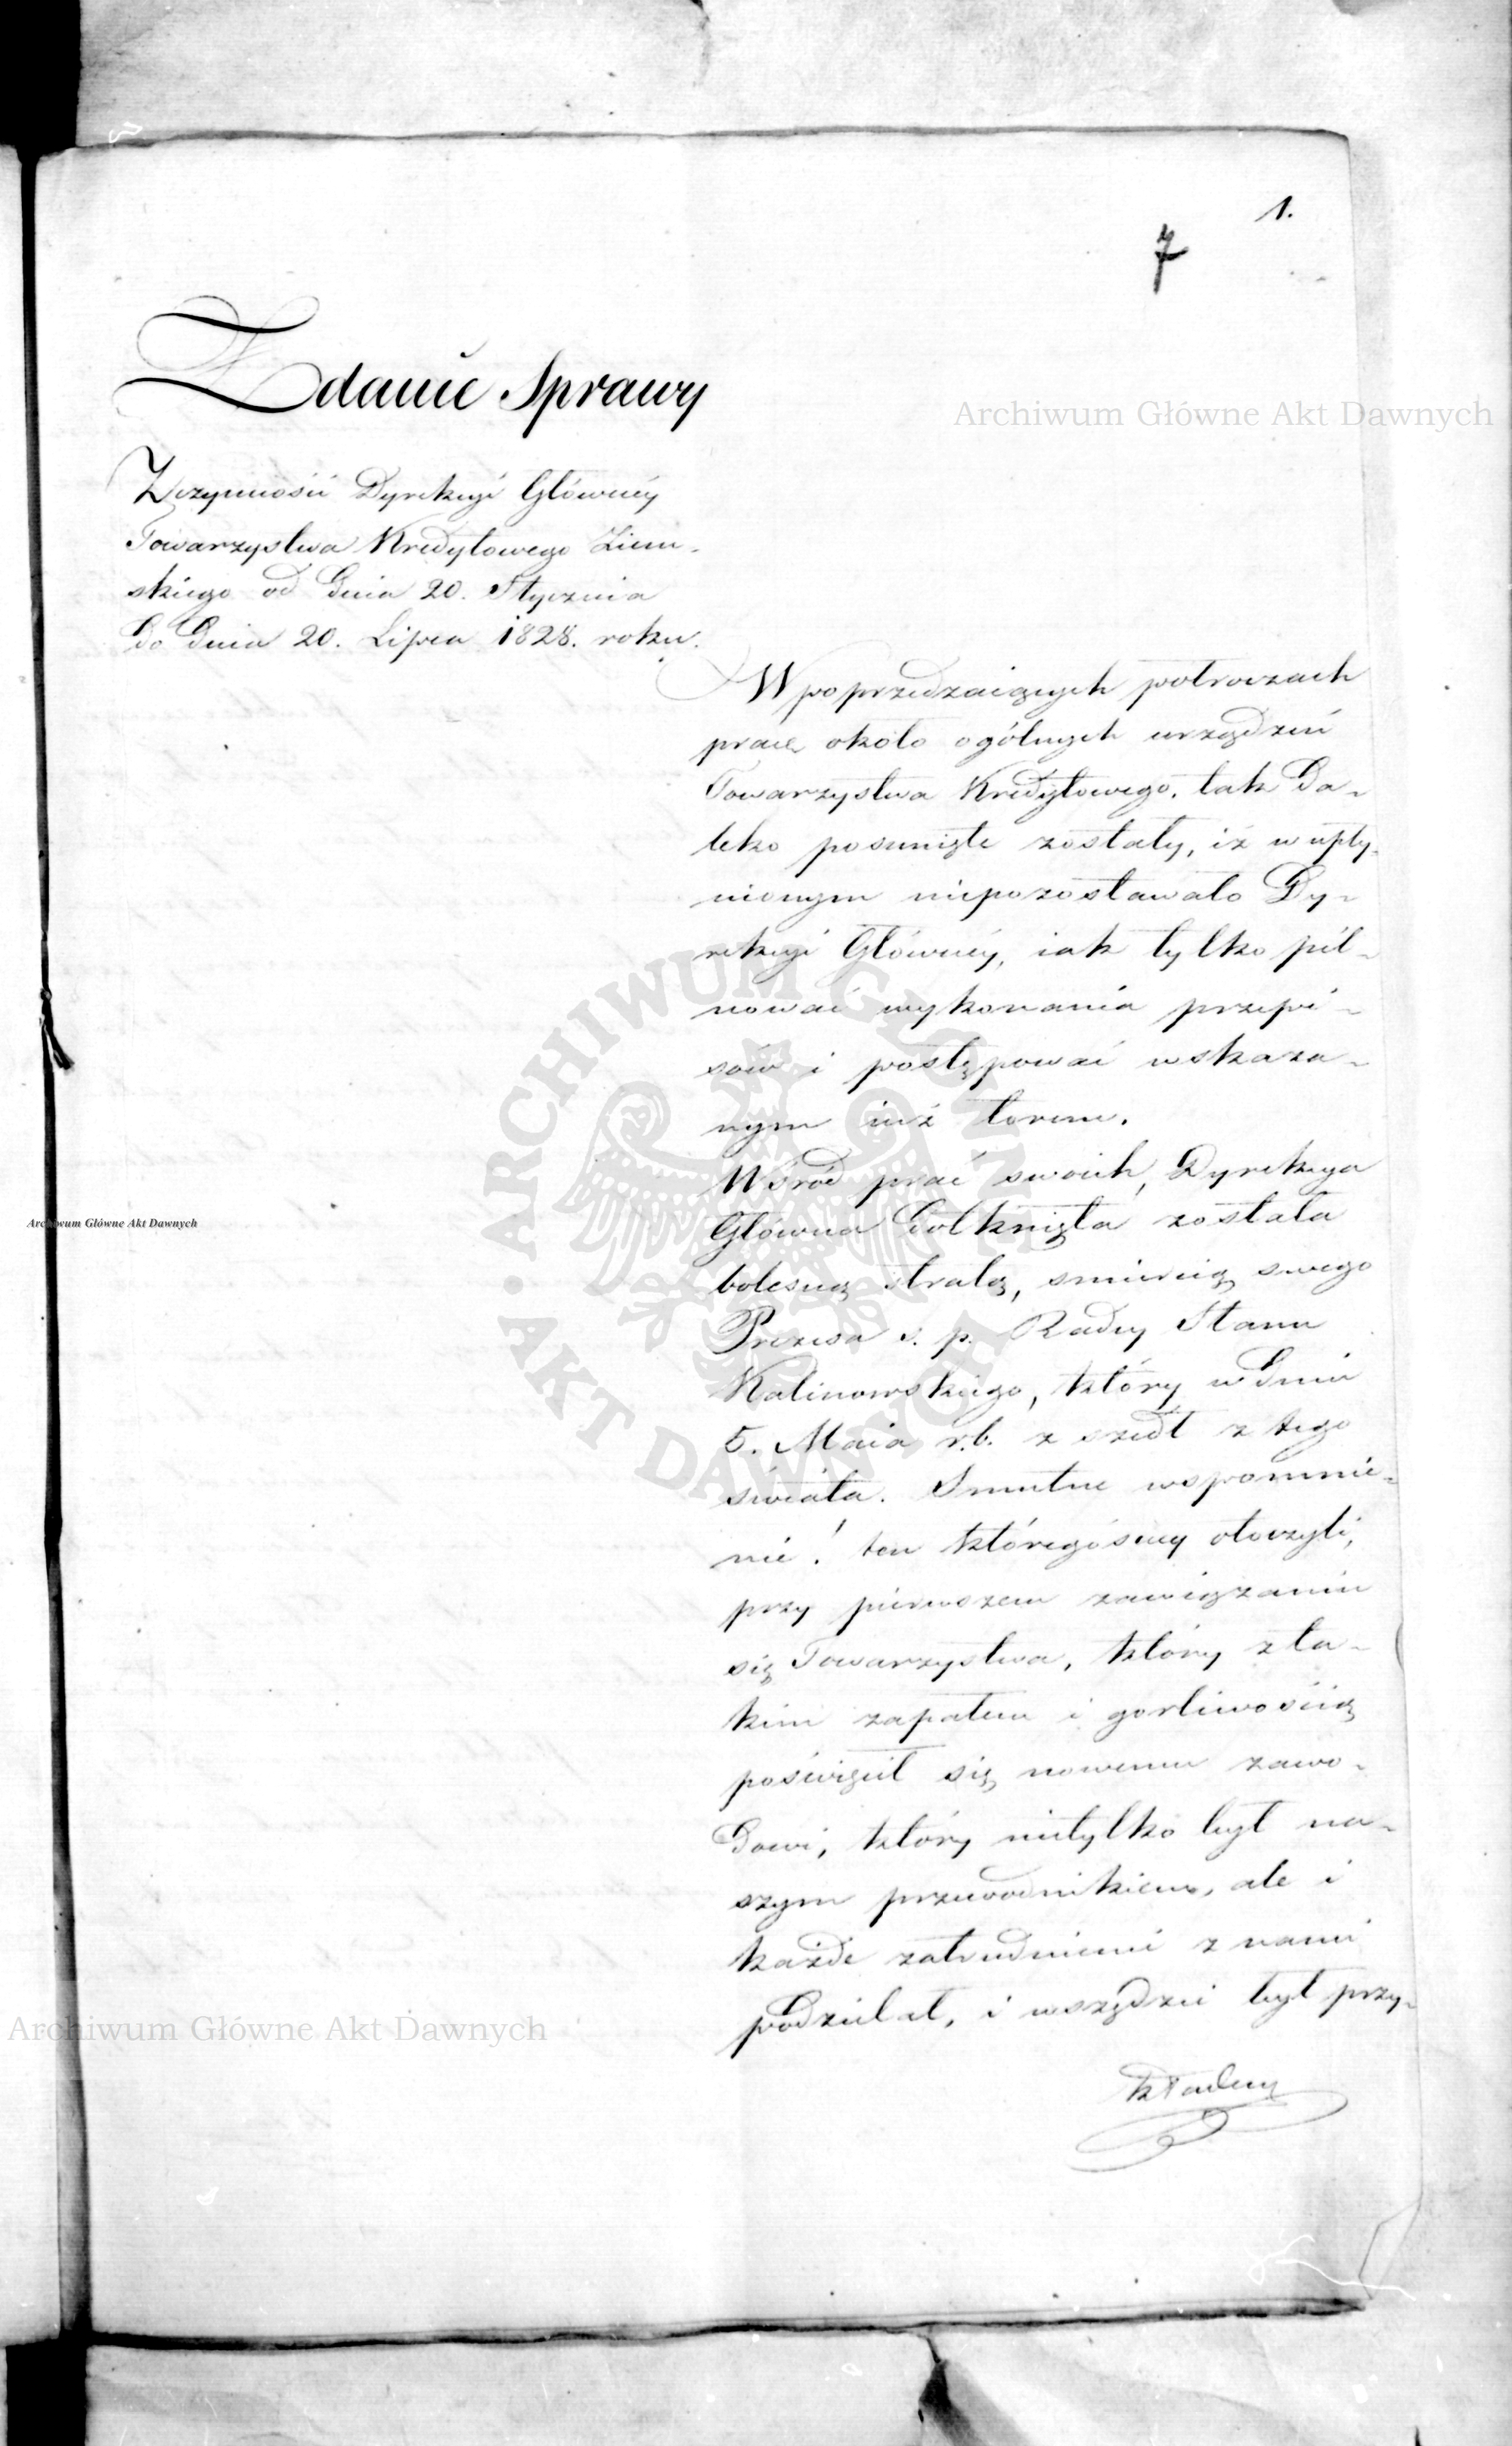 1.
7
Zdanie Sprawy
Z czynności Dyrekcyi Głównéy
Towarzystwa Kredytowego Ziem-
skiego od dnia 20. Stycznia
do dnia 20. Lipca 1828. roku.
W poprzedzaiących półroczach
prace około ogólnych urządzeń
Towarzystwa Kredytowego, tak da-
leko posunięte zostały, iż w upły-
nionym niepozostawało Dy-
rekcyi Głównéy, iak tylko pil-
nować wykonania przepi-
sów i postępować wskaza-
nym iuż torem.
Wśród prac swoich, Dyrekcya
Główna dotknięta została
bolesną stratą, śmiercią swego
Prezesa ś. p. Radcy Stanu
Kalinowskiego, który w dniu
5. Maia r.b. zszedł z tego
świata. Smutne wspomnie-
nie! ten któregośmy otoczyli,
przy pierwszem zawiązaniu
się Towarzystwa, który z ta-
kim zapałem i gorliwością
poświęcił się nowemu zawo-
dowi, który nietylko był na-
szym przewodnikiem, ale i
każde zatrudnienie z nami
podzielał, i wszędzie był przy-
kładem
Archiwum Główne Akt Dawnych
Archiwum Główne Akt Dawnych
Archiwum Główne Akt Dawnych
ARCHIWUM GŁÓWNE AKT DAWNYCH